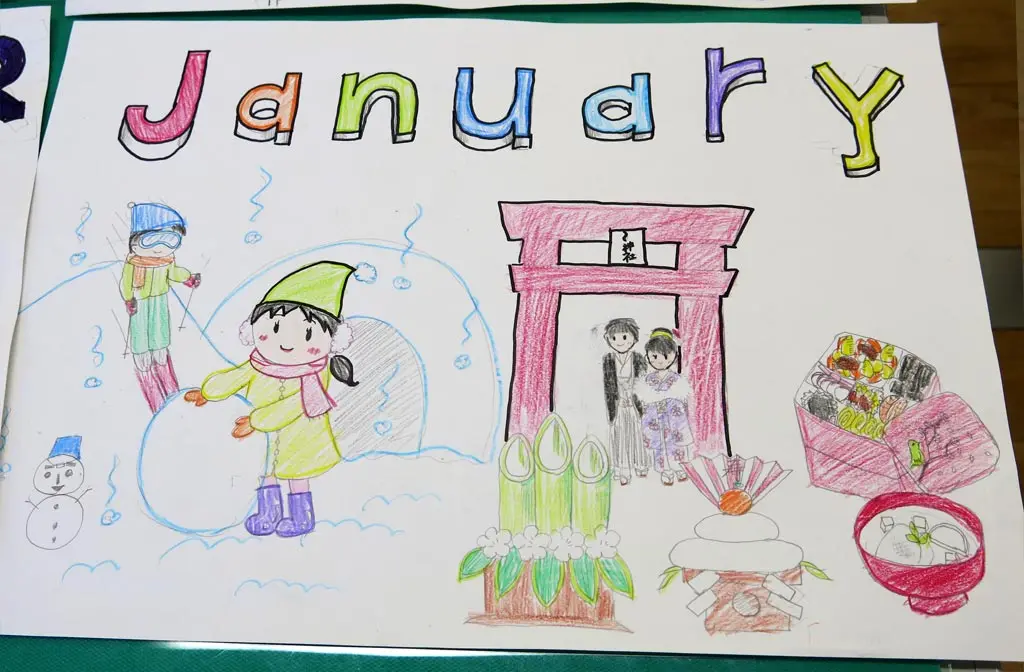 January
神社